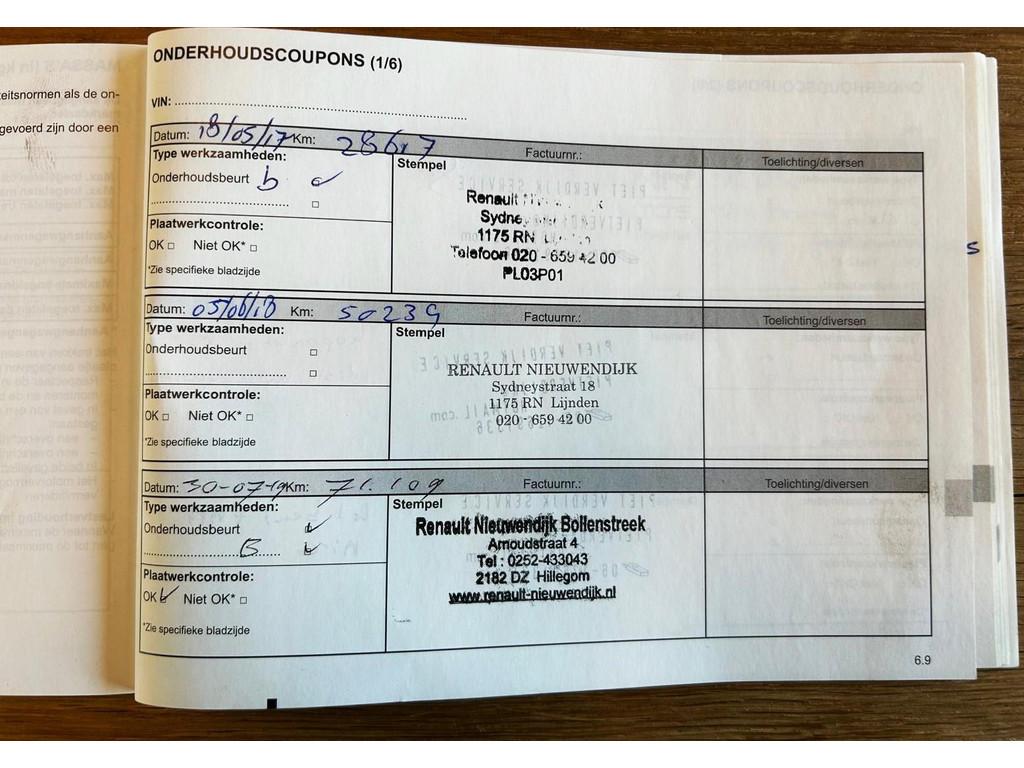 teitsnormen als de on-
gevoerd zijn door een
ONDERHOUDSCOUPONS (1/6)
VIN:
Datum: 18/05/17 Km: 28617 Factuurnr.: Toelichting/diversen
Type werkzaamheden:
Onderhoudsbeurt b
Plaatwerkcontrole:
OK □ Niet OK* □
*Zie specifieke bladzijde
Stempel
Renault
1175 RN
Telefoon 020 - 659 42 00
PL03P01
Datum: 05/06/18 Km: 50239 Factuurnr.: Toelichting/diversen
Type werkzaamheden:
Onderhoudsbeurt □
□
Plaatwerkcontrole:
OK □ Niet OK* □
*Zie specifieke bladzijde
Stempel
RENAULT NIEUWENDIJK
Sydneystraat 18
1175 RN Lijnden
020 - 659 42 00
Datum: 30-07-19 Km: 71.109 Factuurnr.: Toelichting/diversen
Type werkzaamheden:
Onderhoudsbeurt
B
Plaatwerkcontrole:
OK Niet OK* □
*Zie specifieke bladzijde
Stempel
Renault Nieuwendijk Bollenstreek
Arnoudstraat 4
Tel : 0252-433043
2182 DZ Hillegom
www.renault-nieuwendijk.nl
6.9